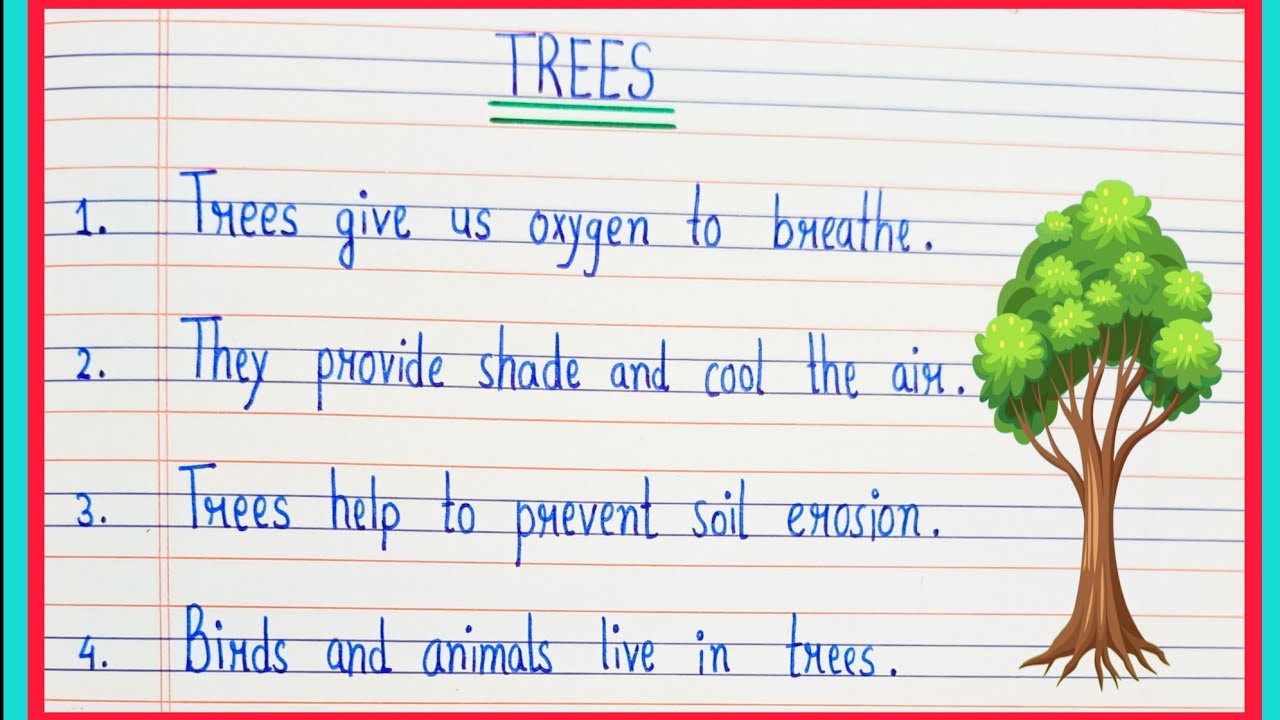 TREES
1. Trees give us oxygen to breathe.
2. They provide shade and cool the air.
3. Trees help to prevent soil erosion.
4. Birds and animals live in trees.